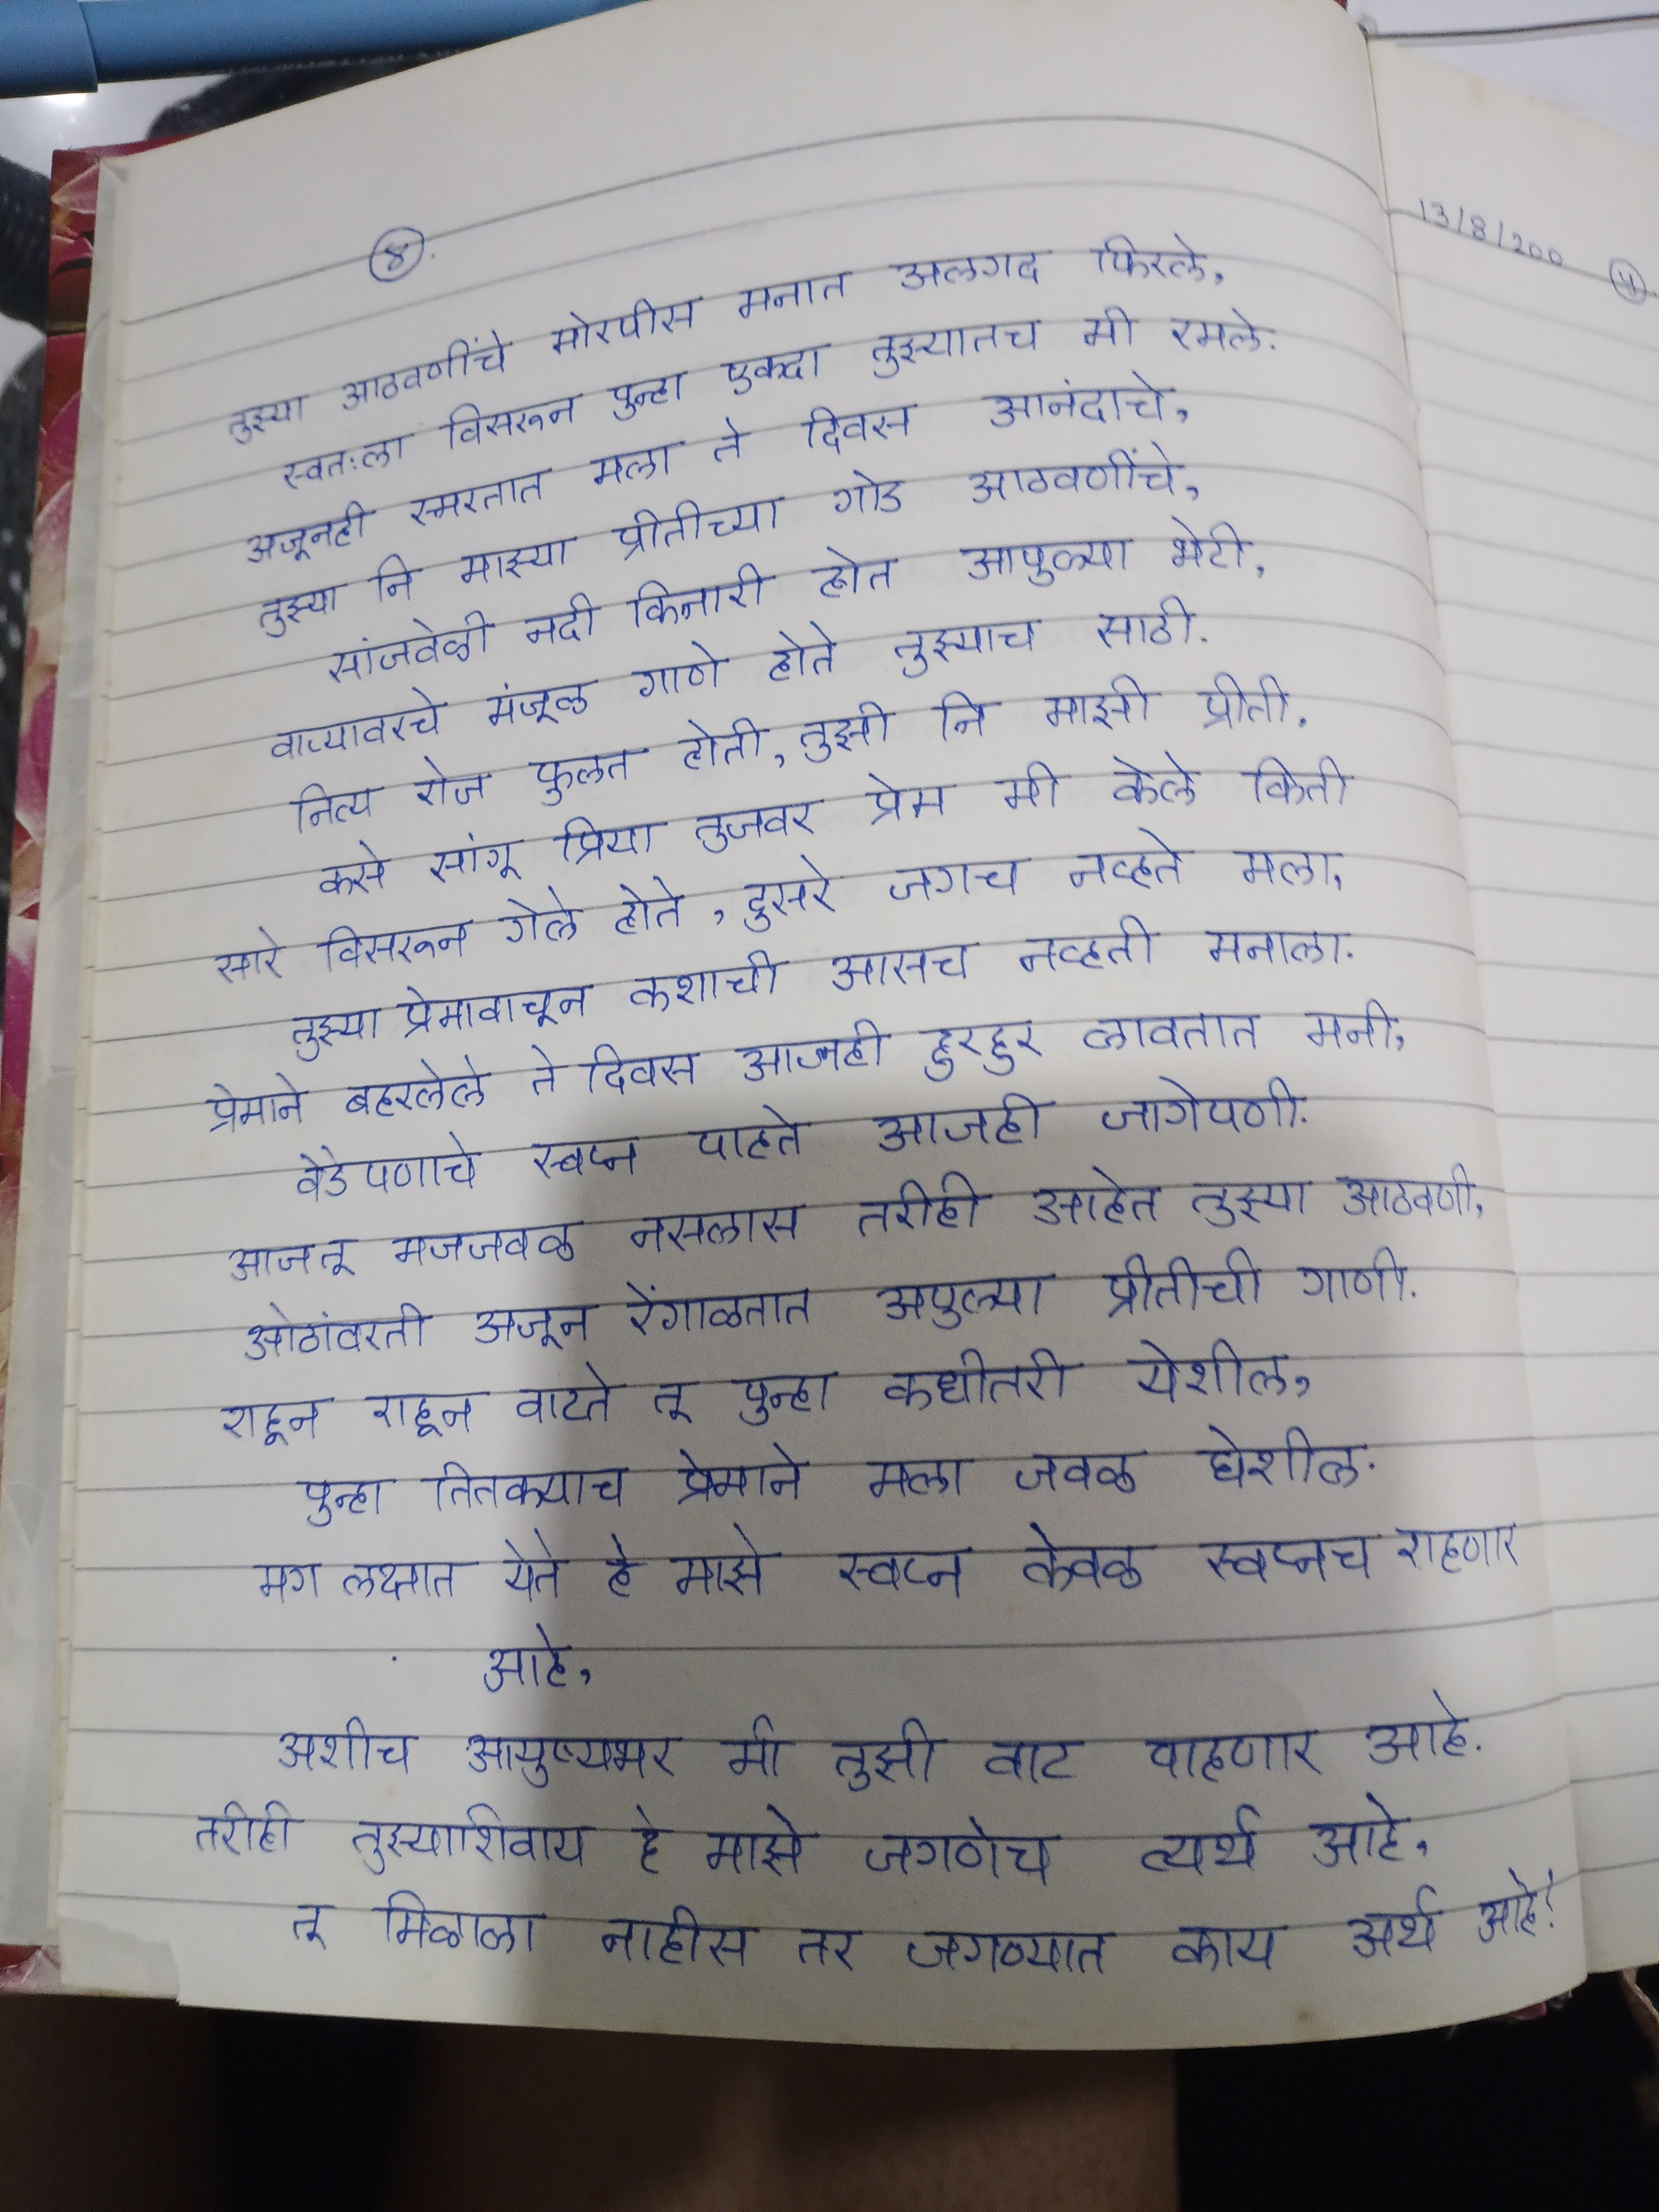 ४.
तुझ्या आठवणींचे मोरपीस मनात अलगद फिरले,
स्वतःला विसरून पुन्हा एकदा तुझ्यातच मी रमले.
अजूनही स्मरतात मला ते दिवस आनंदाचे,
तुझ्या नि माझ्या प्रीतीच्या गोड आठवणींचे,
सांजवेळी नदी किनारी होत आपुल्या भेटी,
वाऱ्यावरचे मंजूळ गाणे होते तुझ्याच साठी.
नित्य रोज फुलत होती, तुझी नि माझी प्रीती.
कसे सांगू प्रिया तुजवर प्रेम मी केले किती
सारे विसरून गेले होते, दुसरे जगच नव्हते मला,
तुझ्या प्रेमावाचून कशाची आसच नव्हती मनाला.
प्रेमाने बहरलेले ते दिवस आजही हुरहुर लावतात मनी,
वेडेपणाचे स्वप्न पाहते आजही जागेपणी.
आज तू मजजवळ नसलास तरीही आहेत तुझ्या आठवणी,
ओठांवरती अजून रेंगाळतात अपुल्या प्रीतीची गाणी.
राहून राहून वाटते तू पुन्हा कधीतरी येशील,
पुन्हा तितक्याच प्रेमाने मला जवळ घेशील.
मग लक्षात येते हे माझे स्वप्न केवळ स्वप्नच राहणार
आहे,
अशीच आयुष्यभर मी तुझी वाट पाहणार आहे.
तरीही तुझ्याशिवाय हे माझे जगणेच व्यर्थ आहे,
तू मिळाला नाहीस तर जगण्यात काय अर्थ आहे!
13/8/200